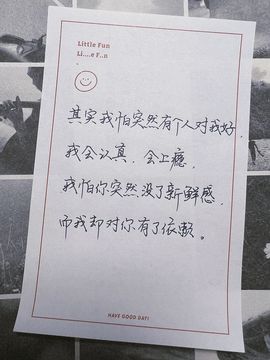 Little Fun
Li....e F..n
其实我怕突然有个人对我好.
我会认真，会上瘾.
我怕你突然没了新鲜感.
而我却对你有了依赖。
HAVE GOOD DAY!